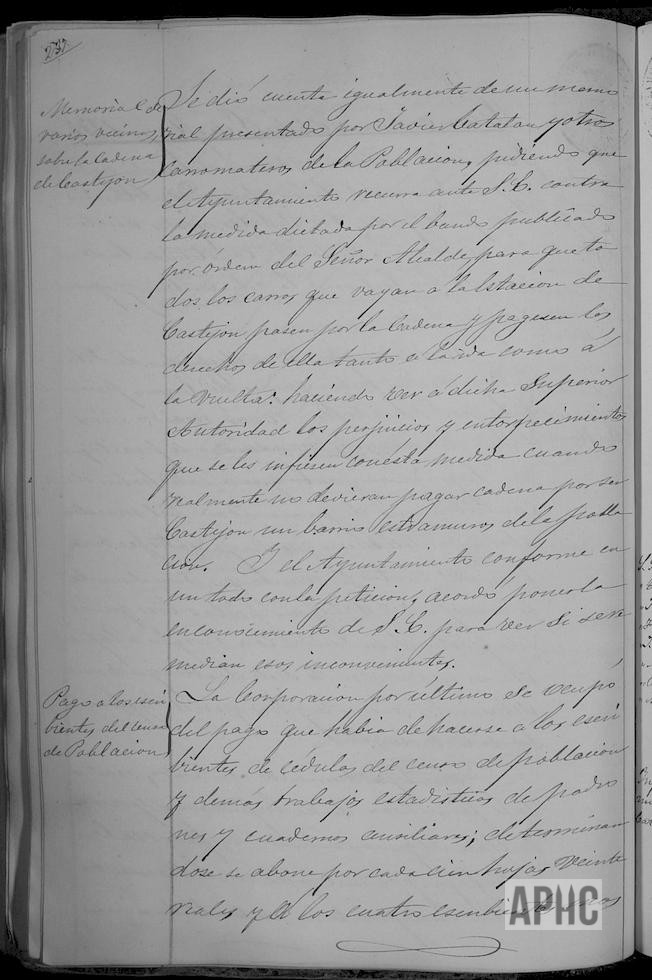 237
Memorial de
varios vecinos
sobre la Cadena
de Castejon
Se dió cuenta igualmente de un memo
rial presentado por Javier Catalan y otros
carromateros de la Poblacion, pidiendo que
el Ayuntamiento recurra ante S.E. contra
la medida dictada por el bando publicado
por órden del Señor Alcalde, para que to
dos los carros que vayan a la Estacion de
Castejon pasen por la Cadena y paguen los
derechos de ella tanto a la ida como á
la vuelta: haciendo ver á dicha Superior
Autoridad los perjuicios y entorpecimientos
que se les infieren con esta medida cuando
realmente no devieran pagar cadena por ser
Castejon un barrio estramuros de la pobla
cion. I el Ayuntamiento conforme en
un todo con la peticion, acordó ponerla
en conocimiento de S.E. para ver si se re
median esos inconvenientes.
Pago a los escri
bientes del censo
de Poblacion
La Corporacion por último se ocupó
del pago que habia de hacerse a los escri
bientes de cédulas del censo de poblacion
y demás trabajos estadisticos de padro
nes y cuadernos auxiliares; determinan
dose se abone por cada cien hojas veinte
reales y a los cuatro escribientes
APHC